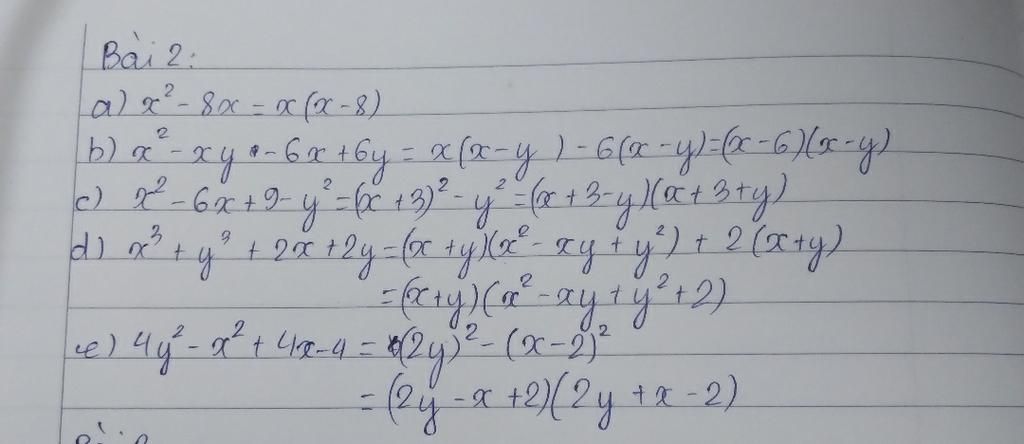 Bài 2:
a) x² - 8x = x(x - 8)
b) x² - xy - 6x + 6y = x(x - y) - 6(x - y) = (x - 6)(x - y)
c) x² - 6x + 9 - y² = (x + 3)² - y² = (x + 3 - y)(x + 3 + y)
d) x³ + y³ + 2x + 2y = (x + y)(x² - xy + y²) + 2(x + y)
= (x + y)(x² - xy + y² + 2)
e) 4y² - x² + 4x - 4 = (2y)² - (x - 2)²
= (2y - x + 2)(2y + x - 2)